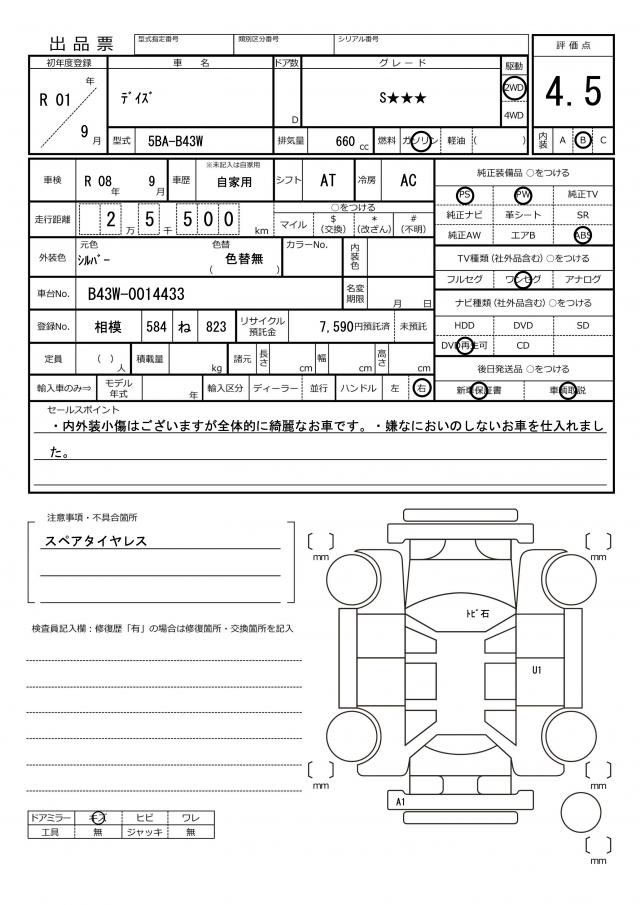 出品票
型式指定番号 類別区分番号 シリアル番号
評価点
4.5
内装 A B C
初年度登録 車名 ドア数 グレード 駆動
R 01 年 9 月
デイズ
D
S★★★
2WD
4WD
型式 5BA-B43W 排気量 660 cc 燃料 ガソリン 軽油 ( )
車検 R 08 年 9 月 車歴 ※未記入は自家用 自家用 シフト AT 冷房 AC
走行距離 2 5 万 千 5 0 0 km
○をつける
マイル $(交換) *(改ざん) #(不明)
外装色 元色 シルバー 色替 色替無 ( )
カラーNo. 内装色
車台No. B43W-0014433 名変期限 月 日
登録No. 相模 584 ね 823 リサイクル預託金 7,590円預託済 未預託
定員 ( ) 人 積載量 kg 諸元 長さ cm 幅 cm 高さ cm
輸入車のみ⇒ モデル年式 年 輸入区分 ディーラー 並行 ハンドル 左 右
純正装備品 ○をつける
PS PW 純正TV
純正ナビ 革シート SR
純正AW エアB ABS
TV種類(社外品含む) ○をつける
フルセグ ワンセグ アナログ
ナビ種類(社外品含む) ○をつける
HDD DVD SD
DVD再生可 CD
後日発送品 ○をつける
新車保証書 車輌取説
セールスポイント
・内外装小傷はございますが全体的に綺麗なお車です。・嫌なにおいのしないお車を仕入れまし
た。
注意事項・不具合箇所
スペアタイヤレス
検査員記入欄:修復歴「有」の場合は修復箇所・交換箇所を記入
ドアミラー キズ ヒビ ワレ
工具 無 ジャッキ 無
mm
mm
トビ石
U1
mm
mm
A1
mm